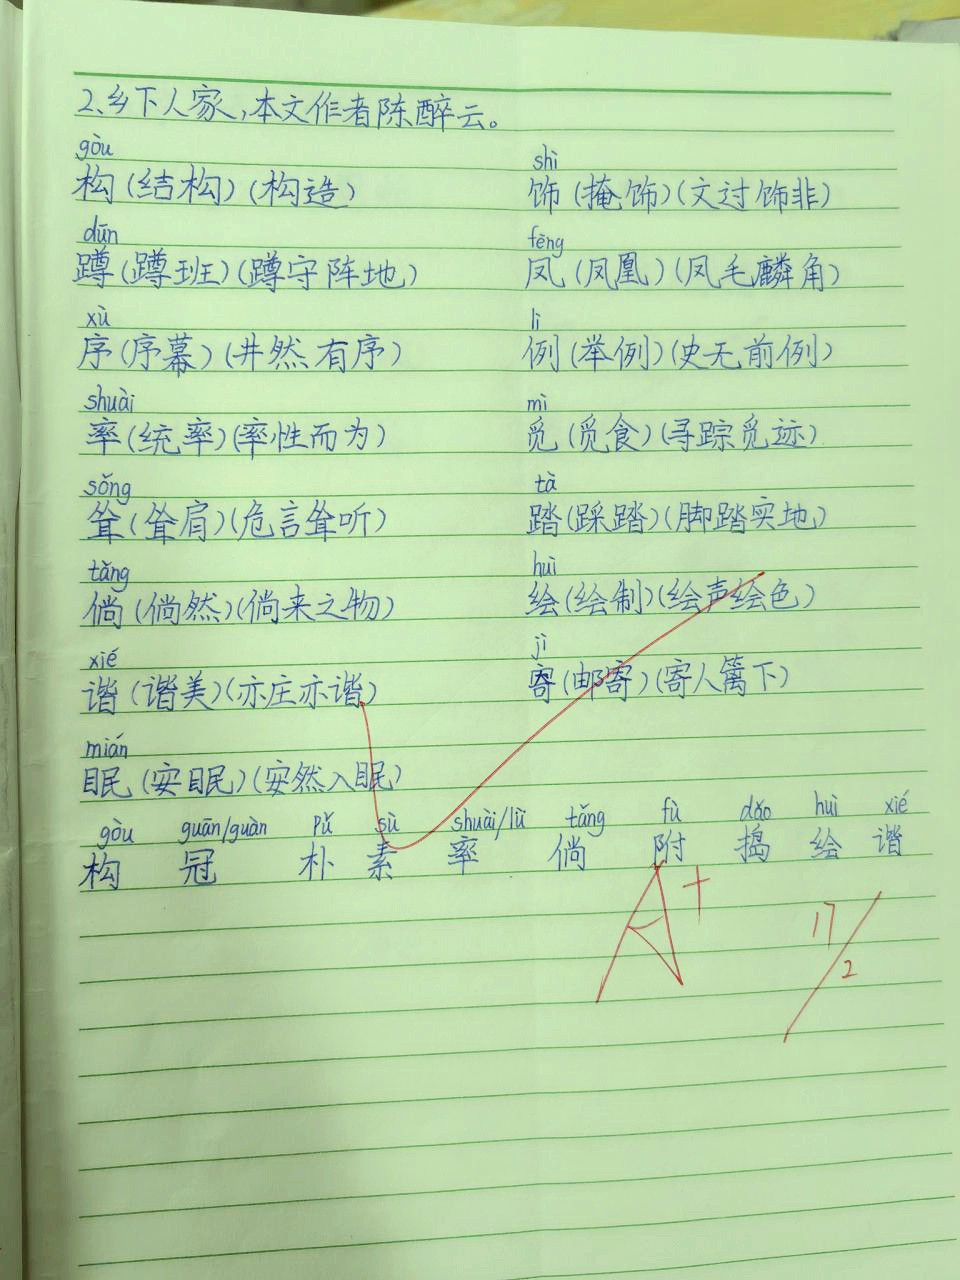 2、乡下人家,本文作者陈醉云。
gòu shì
构(结构)(构造) 饰(掩饰)(文过饰非)
dūn fèng
蹲(蹲班)(蹲守阵地) 凤(凤凰)(凤毛麟角)
xù lì
序(序幕)(井然有序) 例(举例)(史无前例)
shuài mì
率(统率)(率性而为) 觅(觅食)(寻踪觅迹)
sǒng tà
耸(耸肩)(危言耸听) 踏(踩踏)(脚踏实地)
tǎng huì
倘(倘然)(倘来之物) 绘(绘制)(绘声绘色)
xié jì
谐(谐美)(亦庄亦谐) 寄(邮寄)(寄人篱下)
mián
眠(安眠)(安然入眠)
gòu guān/guàn pǔ sù shuài/lǜ tǎng fù dǎo huì xié
构 冠 朴 素 率 倘 附 捣 绘 谐
A+
17/2